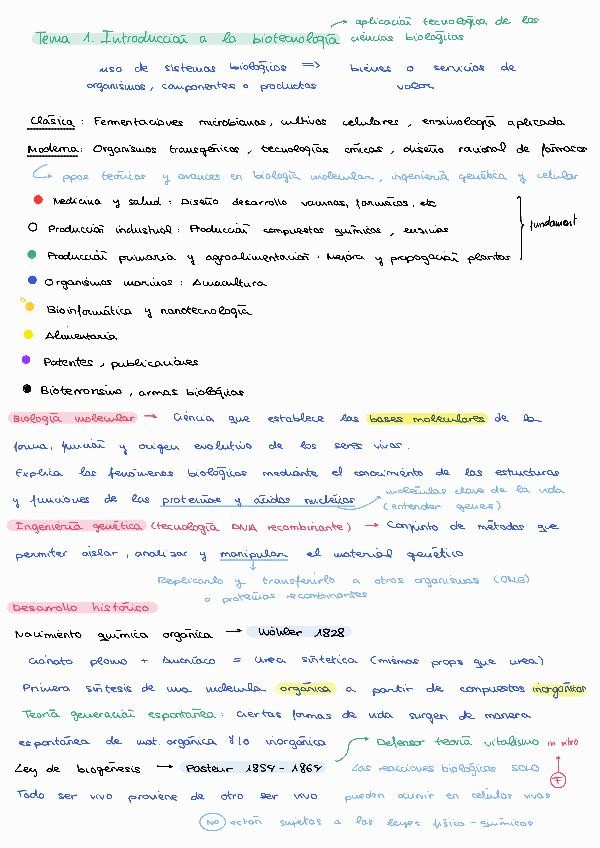 → aplicación tecnológica de las
Tema 1. Introducción a la biotecnología ciencias biológicas
uso de sistemas biológicos ⇒ bienes o servicios de
organismos, componentes o productos valor
Clásica: Fermentaciones microbianas, cultivos celulares, enzimología aplicada
Moderna: Organismos transgénicos, tecnologías ómicas, diseño racional de fármacos
↳ ppos teóricos y avances en biología molecular, ingeniería genética y celular
Medicina y salud: Diseño desarrollo vacunas, fármacos, etc
Producción industrial: Producción compuestos químicos, enzimas
fundament
Producción primaria y agroalimentación: Mejora y propagación plantas
Organismos marinos: Acuacultura
Bioinformática y nanotecnología
Alimentaria
Patentes, publicaciones
Bioterrorismo, armas biológicas
Biología molecular → Ciencia que establece las bases moleculares de la
forma, función y origen evolutivo de los seres vivos.
Explica los fenómenos biológicos mediante el conocimiento de las estructuras
y funciones de las proteínas y ácidos nucleicos → moléculas clave de la vida
(entender genes)
Ingeniería genética (tecnología DNA recombinante) → Conjunto de métodos que
permiten aislar, analizar y manipular el material genético
Replicarlo y transferirlo a otros organismos (OMG)
o proteínas recombinantes
Desarrollo histórico
Nacimiento química orgánica → Wöhler 1828
Cianato plomo + Amoníaco = Urea sintética (mismas props que urea)
Primera síntesis de una molécula orgánica a partir de compuestos inorgánicos
Teoría generación espontánea: Ciertas formas de vida surgen de manera
espontánea de mat. orgánica y/o inorgánica → Defensor teoría vitalismo in vitro
Ley de biogénesis → Pasteur 1859 - 1864 Las reacciones biológicas SOLO
Todo ser vivo proviene de otro ser vivo pueden ocurrir en células vivas
NO están sujetas a las leyes físico-químicas